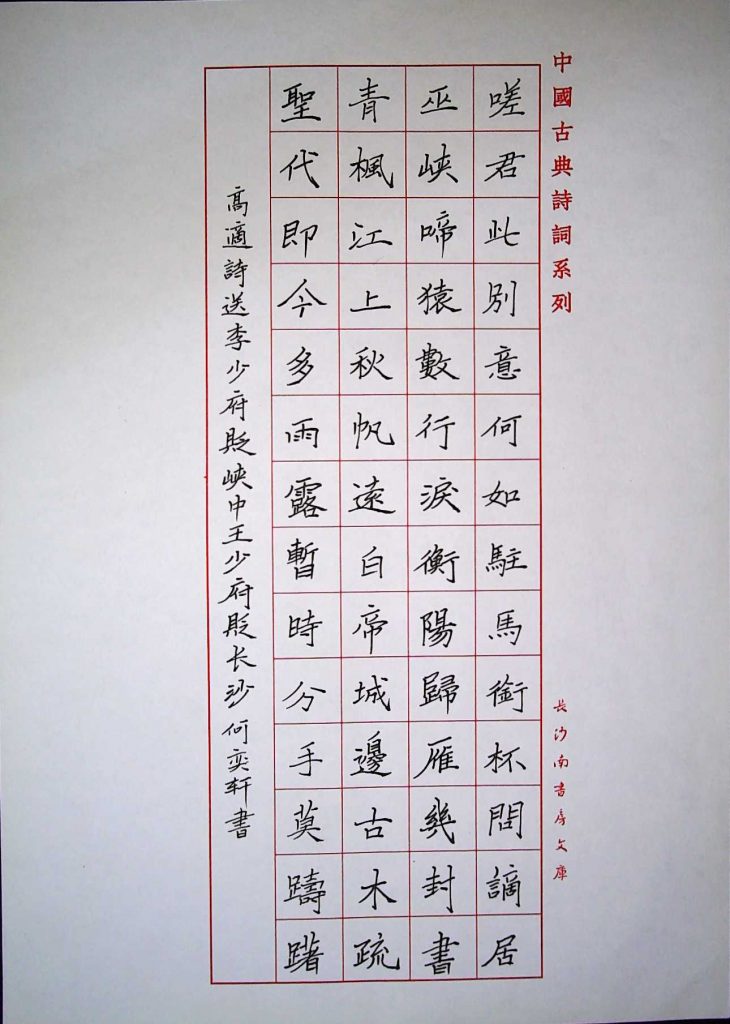 中國古典詩詞系列
長沙南書房文庫
嗟君此別意何如駐馬銜杯問謫居
巫峽啼猿數行淚衡陽歸雁幾封書
青楓江上秋帆遠白帝城邊古木疏
聖代即今多雨露暫時分手莫躊躇
高適詩送李少府貶峽中王少府貶长沙何奕轩書